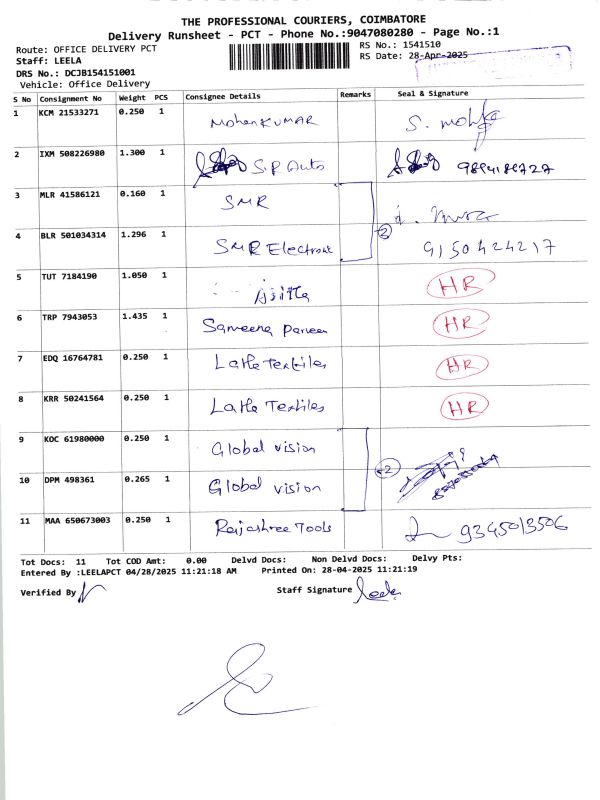 THE PROFESSIONAL COURIERS, COIMBATORE
Delivery Runsheet - PCT - Phone No.:9047080280 - Page No.:1
Route: OFFICE DELIVERY PCT RS No.: 1541510
Staff: LEELA RS Date: 28-Apr-2025
DRS No.: DCJB154151001
Vehicle: Office Delivery
S No Consignment No Weight PCS Consignee Details Remarks Seal & Signature
1 KCM 21533271 0.250 1 Mohan KUMAR
2 IXM 508226980 1.300 1 S.P Auto
3 MLR 41586121 0.160 1 SMR
4 BLR 501034314 1.296 1 SMR Electronic 2 9150424217
5 TUT 7184190 1.050 1 HR
6 TRP 7943053 1.435 1 Sameena Parveen HR
7 EDQ 16764781 0.250 1 Latha Textiles HR
8 KRR 50241564 0.250 1 Latha Textiles HR
9 KOC 61980000 0.250 1 Global vision
10 DPM 498361 0.265 1 Global vision 2
11 MAA 650673003 0.250 1 Rajashree Tools 9345013506
Tot Docs: 11 Tot COD Amt: 0.00 Delvd Docs: Non Delvd Docs: Delvy Pts:
Entered By :LEELAPCT 04/28/2025 11:21:18 AM Printed On: 28-04-2025 11:21:19
Verified By Staff Signature Leela